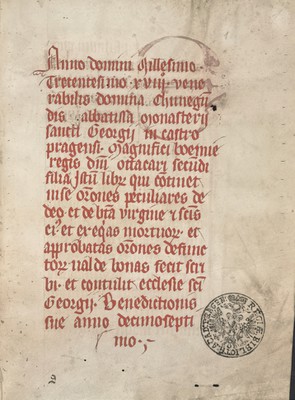 Anno domini Millesimo
Trecentesimo xviij. vene
rabilis domina Chunegū
dis abbatissa monasterii
sancti Georgii in castro
pragensi. Magnifici boemie
regis dn̄i ottacari secūdi
filia Istū libꝝ qui cōtinet
in se or̄ones peculiares de
deo et de bt̄a virgine et sc̄is
ei et exequias mortuoꝝ et
approbatas or̄ones defunc
toꝝ valde bonas fecit scri
bi et contulit ecclesie sc̄i
Georgii. Benedictionis
sue anno decimosepti
mo
2